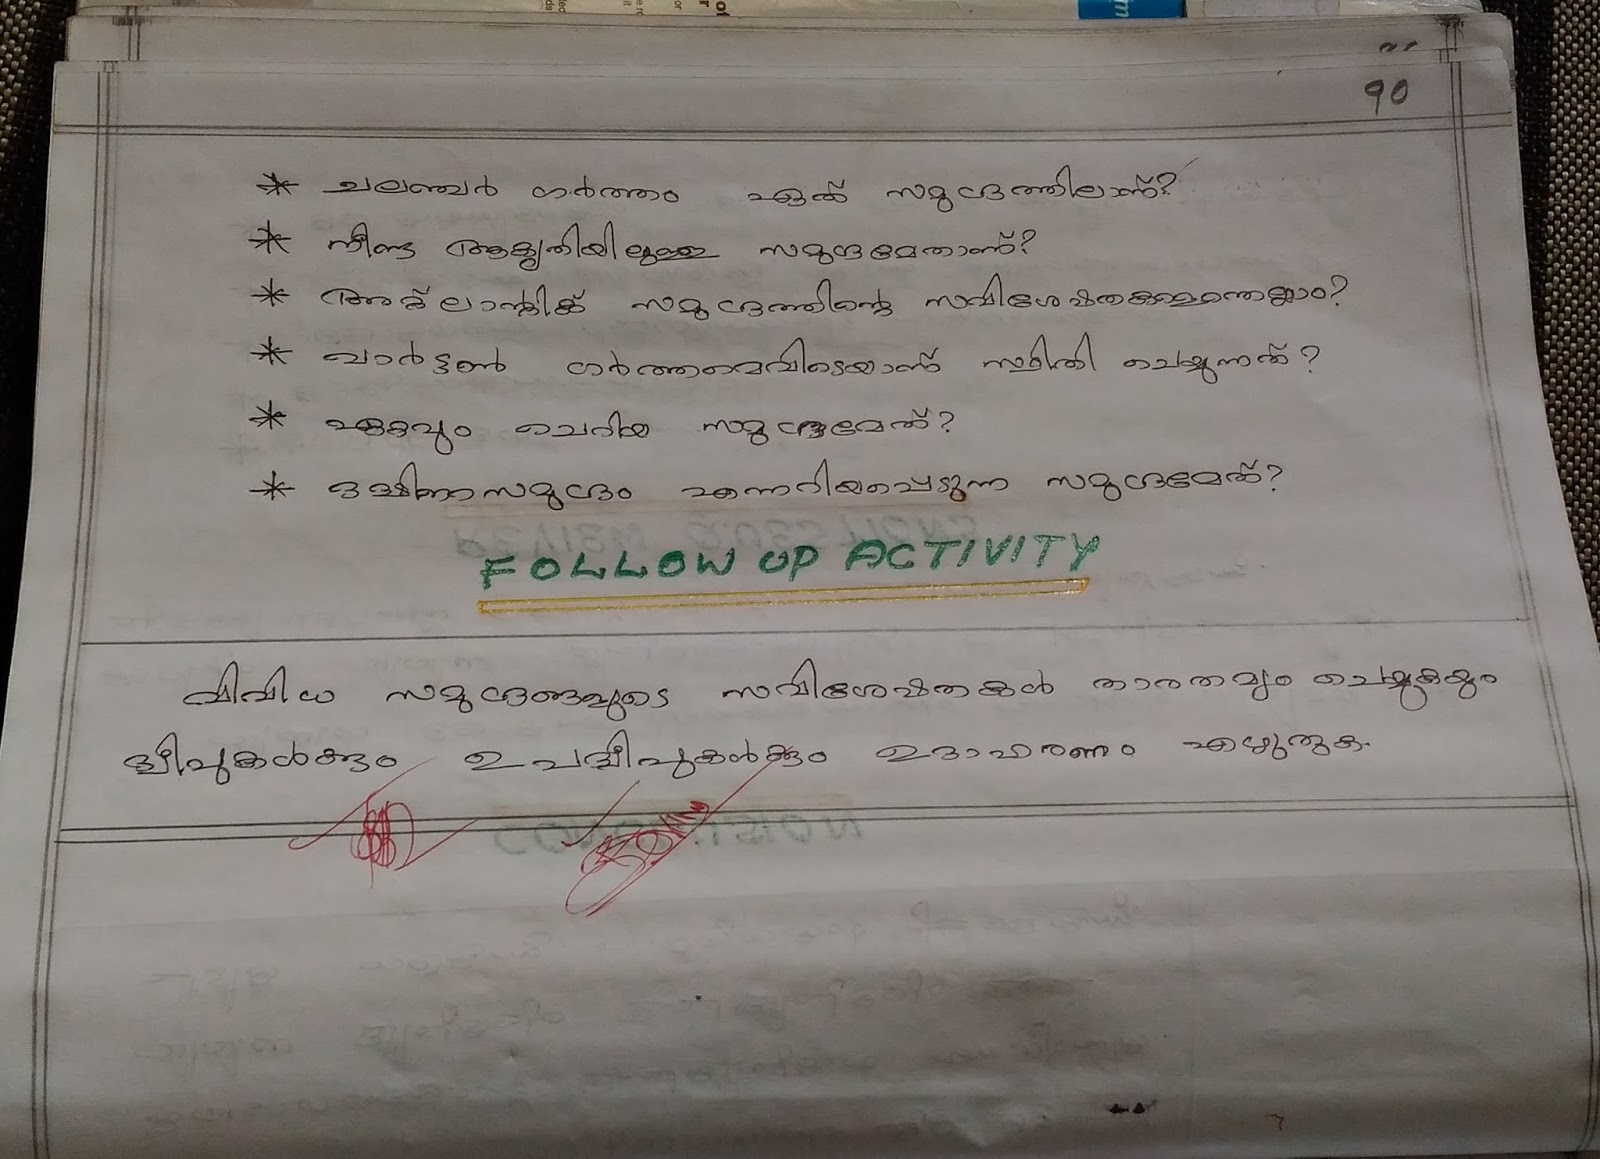 90
* ചലഞ്ചർ ഗർത്തം ഏത് സമുദ്രത്തിലാണ്?
* നീണ്ട ആകൃതിയിലുള്ള സമുദ്രമേതാണ്?
* അറ്റ്ലാന്റിക് സമുദ്രത്തിന്റെ സവിശേഷതകളെന്തെല്ലാം?
* വാർട്ടൺ ഗർത്തമെവിടെയാണ് സ്ഥിതി ചെയ്യുന്നത്?
* ഏറ്റവും ചെറിയ സമുദ്രമേത്?
* ദക്ഷിണസമുദ്രം എന്നറിയപ്പെടുന്ന സമുദ്രമേത്?
FOLLOW UP ACTIVITY
വിവിധ സമുദ്രങ്ങളുടെ സവിശേഷതകൾ താരതമ്യം ചെയ്യുകയും
ദ്വീപുകൾക്കും ഉപദ്വീപുകൾക്കും ഉദാഹരണം എഴുതുക.